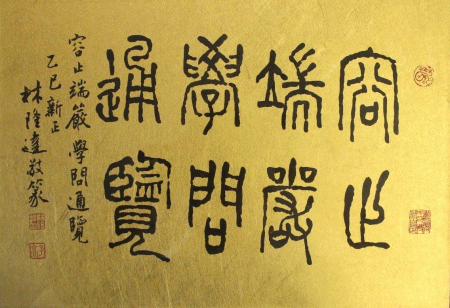 容止
端嚴
學問
通覽
容止端嚴 學問通覽
乙巳新正
林隆達敬篆